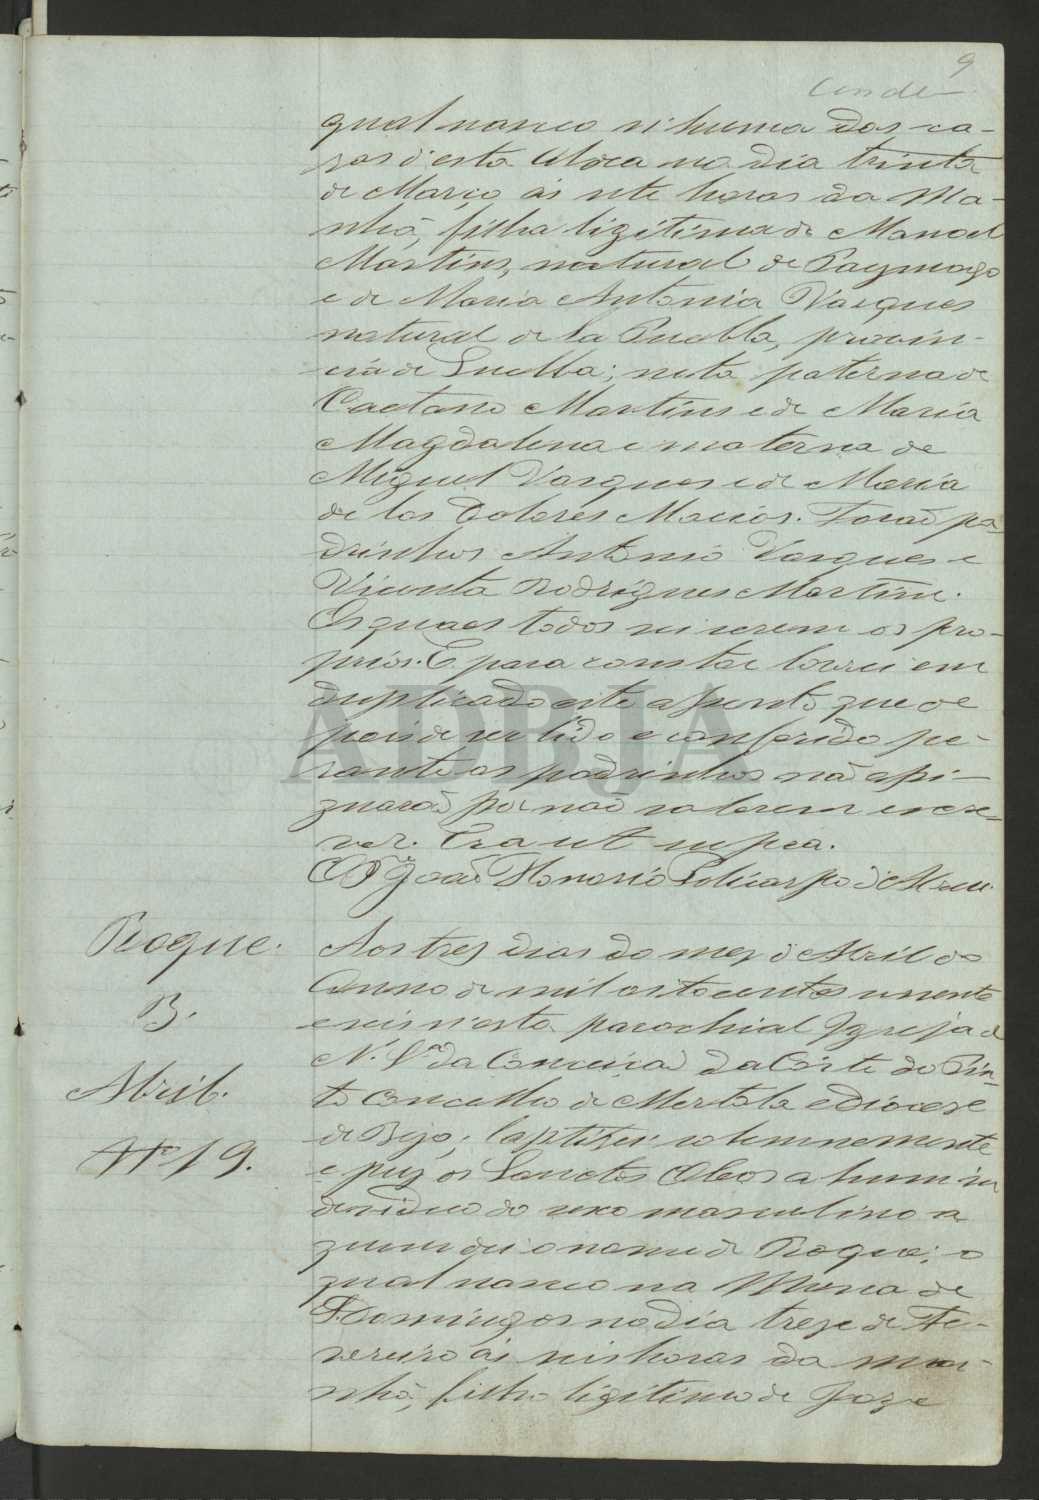 9
Conde
qual nasceo n'huma das ca-
zas d'esta Aldea no dia trinta
de Março ás sete horas da Ma-
nhã, filha ligitima de Manoel
Martins, natural de Paymogo
e de Maria Antonia Vasques
natural de la Puebla, provin-
cia de Huelba; neta paterna de
Caetano Martins e de Maria
Magdalena e materna de
Miguel Vasques e de Maria
de los Dolores Macias. Forão pa-
drinhos Antonio Vasques e
Vicenta Rodrigues Martins.
Os quaes todos sei serem os pro-
prios. E para constar lavrei em
duplicado este assento que de
pois de ser lido e conferido pe-
rante os padrinhos não assi-
gnarão por não saberem escre-
ver. Era ut supra.
O Pr. João Honorio Policarpo d'Abreu
Roque.
B.
Abril.
Nº 19.
Aos tres dias do mez d'Abril do
Anno de mil oitocentos sesenta
e seis n'esta parochial Igreja de
N. Srª da Conceição da Corte do Pin-
to Concelho de Mertola e Diocese
de Beja; baptizei solemnemente
e puz os Sanctos Oleos a hum in
dividuo do sexo masculino a
quem dei o nome de Roque; o
qual nasceo na Mina de
S. Domingos no dia treze de Fe-
vereiro ás seis horas da ma-
nhã, filho ligitimo de Joze
ADBJA